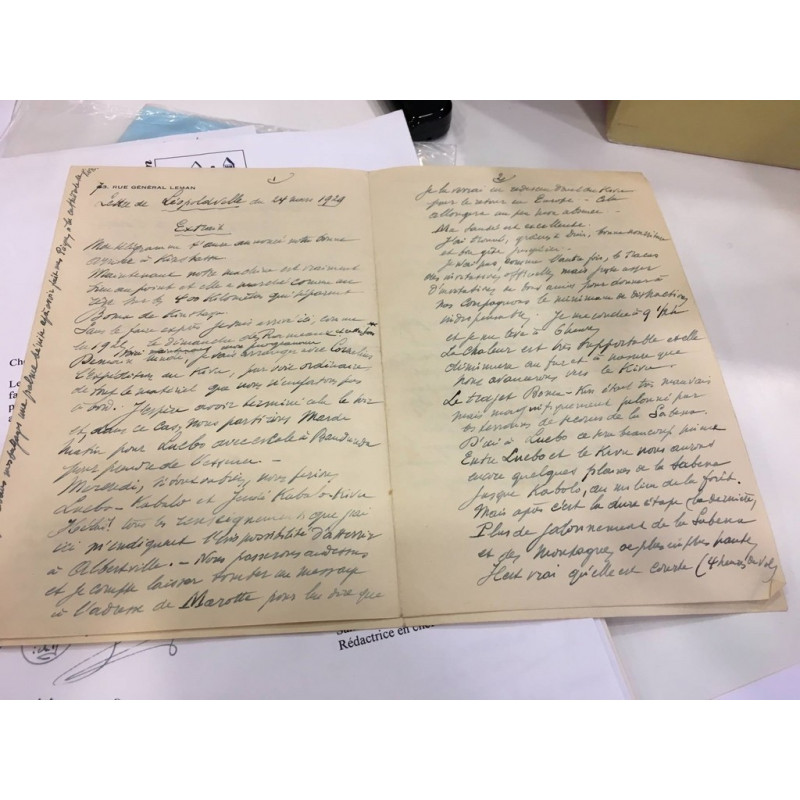 1
73, RUE GÉNÉRAL LEMAN
Lettre de Léopoldville du 24 mars 1929
Extrait
Mon télégramme d'hier annonce notre bonne
arrivée à Kinshasa
Maintenant notre machine est vraiment
bien au point et elle a marché comme un
rêve sur les 400 kilomètres qui séparent
Boma de Kinshasa
Sans le faire exprès je suis arrivé ici, comme
en 1925, le dimanche des Rameaux
Demain lundi, je vais arranger avec
l'expédition au Kivu, par voie ordinaire
de tout le matériel que nous n'emportons pas
à bord. J'espère avoir terminé cela le soir
et, dans ce cas, nous partirons Mardi
matin pour Luebo avec escale à
pour prendre de l'essence. —
Mercredi, nous ferions
Luebo - Kabalo et Jeudi Kabalo - Kivu
Hélas! tous les renseignements que j'ai
ici m'indiquent l'impossibilité d'atterrir
à Albertville. — Nous passerons au dessus
et je compte laisser tomber un message
à l'adresse de Marotte pour lui dire que
2
Je la verrai en
pour le retour en Europe - Cela
allongera un peu mon absence.
Ma santé est excellente.
J'ai trouvé, grâce à Dieu, bonne
et bon gîte jusqu'ici.
Je n'ai pas, comme l'autre fois, le tracas
des invitations officielles mais juste assez
d'invitations de bons amis pour donner à
nos compagnons le minimum de distractions
indispensables. Je me couche à 9 1/2 h
et je me lève à 6 heures
La chaleur est très supportable et elle
diminuera au fur et à mesure que
nous avancerons vers le Kivu.
Le trajet Boma - Kin était très mauvais
mais magnifiquement jalonné par
les terrains de secours de la Sabena.
D'ici à Luebo ce sera beaucoup mieux
Entre Luebo et le Kivu nous aurons
encore quelques plaines de la Sabena
jusque Kabalo, au milieu de la forêt.
Mais après c'est la dure étape (la dernière)
Plus de jalonnement de la Sabena
et des montagnes de plus en plus hautes
Il est vrai qu'elle est courte (4 heures de vol)
Rédactrice en che